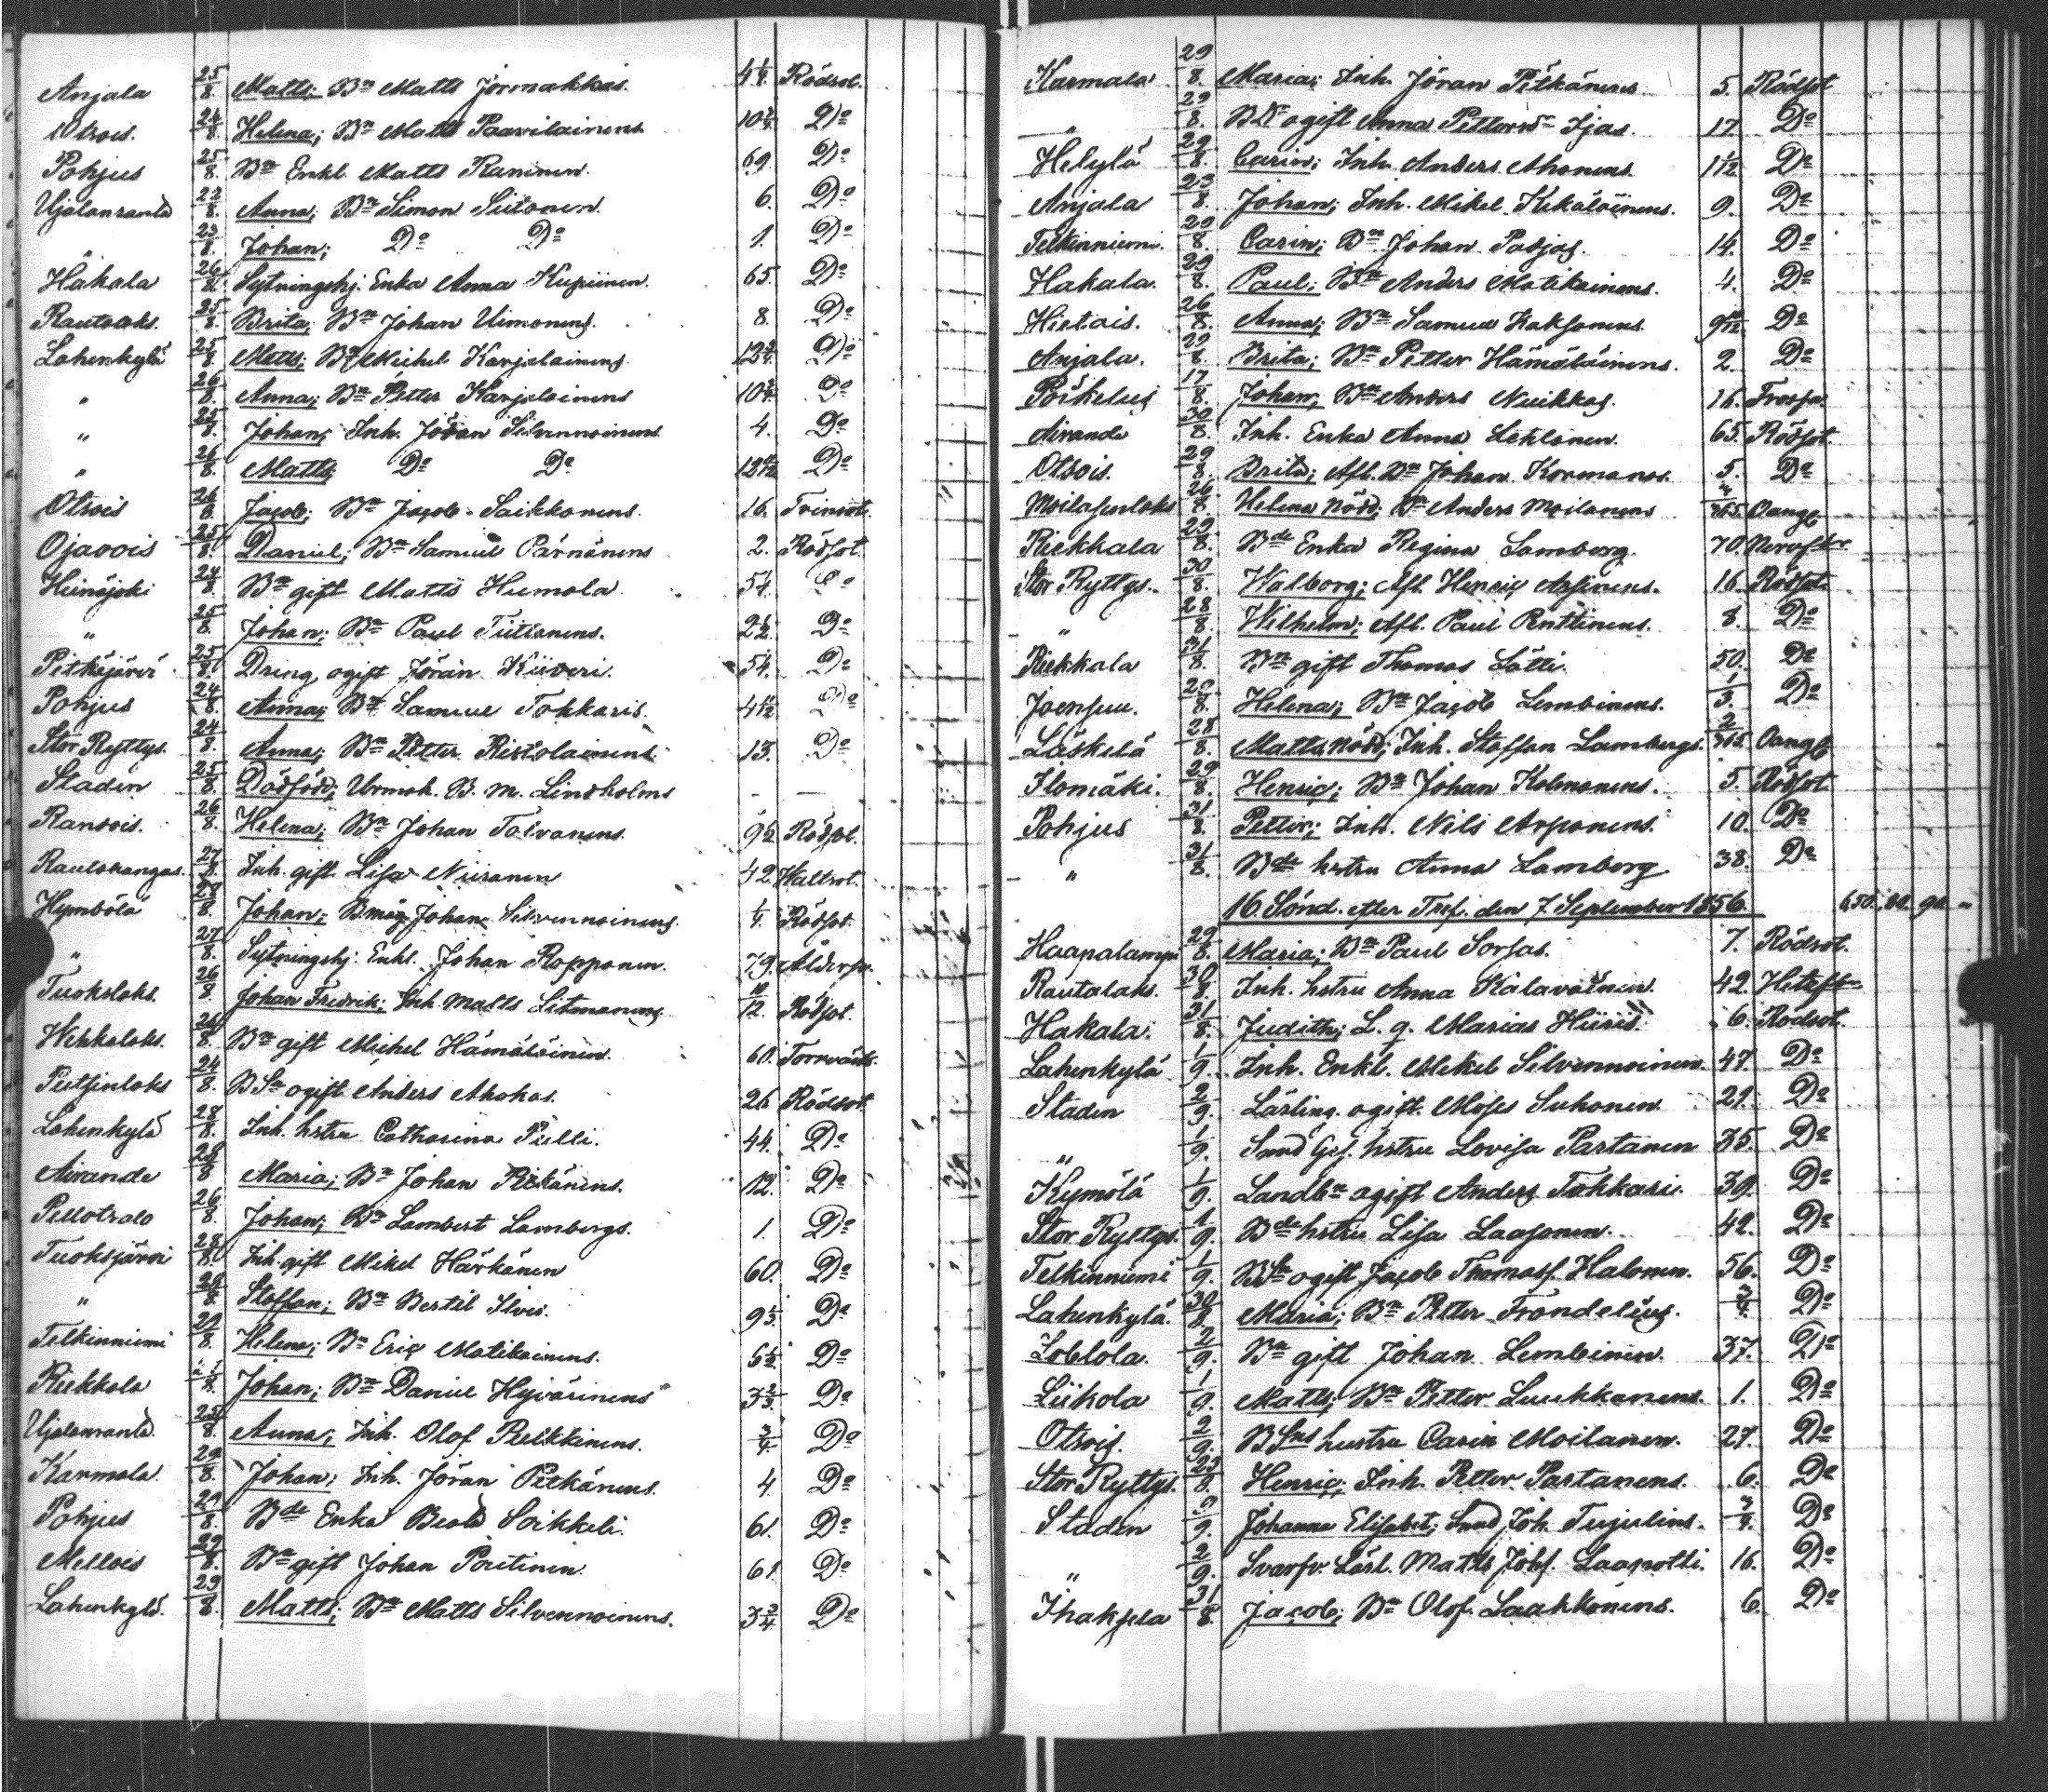 Anjala 25/8. Matts; Bn Matts Jormakkas. 4 1/4. Rödsot.
Otsois. 24/8. Helena; Bn Matts Paavilainens 10 3/4. Do
Pohjus 25/8. Bn Enkl. Matts Raninen. 69. Do
Ujalanranta 22/8. Anna; Bn Simon Siitonen 6. Do
" 23/8. Johan; Do Do 1. Do
Hakala 26/8. Sytningshj. Enka Anna Kupiinen. 65. Do
Rautalaks. 25/8. Brita; Bn Johan Uimonens. 8. Do
Lahenkylä 25/8. Matts; Bn Michel Karjalainens. 12 3/4. Do
" 26/8. Anna; Bn Petter Karjalainens 10 3/4. Do
" 25/8. Johan; Inh. Jöran Silvennoinens. 4. Do
" 26/8. Matts; Do Do Do
Otsois 26/8. Jacob; Bn Jacob Saikkonens. 16. Trinsot.
Ojavois 25/8. Daniel; Bn Samuel Pärnänens 2. Rödsot.
Heinäjoki 24/8. Bn gift Matts Humala. 54. Do
" 25/8. Johan; Bn Paul Tiitianens. 2 1/2. Do
Pitkäjärvi 25/8. Dräng ogift Jöran Kiiveri. 54. Do
Pohjus 24/8. Anna; Bn Samuel Tokkaris. Do
Stor Ryttys. 24/8. Anna; Bn Petter Ristolainens 13. Do
Staden 25/8. Dödfödd; Urmak. B. M. Lindholms – –
Ransois. 26/8. Helena; Bn Johan Talvanens. 9 1/2. Rödsot.
Raulokangas. 27/8. Inh. gift Lisa Niiranen 42. Hallsot.
Hymbölä 28/8. Johan; Bmåg Johan Silvennoinens. 1/4. Rödsot.
" 27/8. Sytningshj. Enkl. Johan Ropponen. 79. Ålderso.
Tuokslaks. 26/8. Johan Fredrik; Inh. Matts Litmanens 10/12. Rödsot.
Wehkalaks. 26/8. Bn gift Michel Hämäläinen. 60. Torrvärk.
Petsinlaks 24/8. BSn ogift Anders Ahokas. 26. Rödsot.
Lahenkylä 28/8. Inh. hstru Catharina Pulli. 44. Do
Airande 28/8. Maria; Bn Johan Pitkänens. 12. Do
Pellotsalo 26/8. Johan; Bn Lambert Lambergs. 1. Do
Tuoksjärvi 28/8. Inh. gift Mikel Härkänen 60. Do
" 28/8. Staffan; Bn Bertil Ilves. 9 1/3. Do
Telkinniemi 29/8. Helena; Bn Eric Matikainens. 6 1/2. Do
Riekkala Johan; Bn Daniel Hyvärinens 3 2/3. Do
Ujalanranta 25/8. Anna; Inh. Olof Pulkkinens. 3/4. Do
Karmala 29/8. Johan; Inh. Jöran Pitkänens. 4. Do
Pohjus 29/8. Bde Enka Beata Soikkeli. 61. Do
Mellois 29/8. Bn gift Johan Poutinen. 61. Do
Lahenkylä. 29/8. Matts; Bn Matts Silvennoinens. 3 3/4. Do
Karmala 29/8. Maria; Inh. Jöran Pitkänens 5. Rödsot
" 29/8. BDr ogift Anna Pettersdr Ijas. 17. Do
Helylä 29/8. Carin; Inh. Anders Ahonens 1 1/12. Do
Anjala 23/8. Johan; Inh. Mikel Kekäläinens. 9. Do
Telkinniemi. 29/8. Carin; Bn Johan Padjas. 14. Do
Hakala. 29/8. Paul; Bn Anders Matikainens. 4. Do
Hietois. 26/8. Anna; Bn Samuel Kaksonens. Do
Anjala. 29/8. Brita; Bn Petter Hämäläinens. 2. Do
Pöikelus 17/8. Johan; Bn Anders Nuikkas. 16. Frossa.
Airande 30/8. Inh. Enka Anna Lehtonen. 65. Rödsot.
Otsois. 29/8. Brita; Afl. Bn Johan Kormanos. 5. Do
Moilasenlaks 26/8. Helena Nödd; Bn Anders Moilanens /365. Oang.
Riekkala 29/8. Bde Enka Regina Lamberg. 70. Nervfbr.
Stor Ryttys. 30/8. Walborg; Afl. Henric Asikinens. 16. Rödsot.
" 28/8. Wilhelm; Afl. Paul Penttinens. 8. Do
Riekkala 31/8. Bn gift Thomas Lätti. 50. Do
Joensuu. 29/8. Helena; Bn Jacob Lembinens. 1/3. Do
Läskelä 28/8. Matts nödd; Inh. Staffan Lambergs. 2/365. Oang.
Ilomäki. 29/8. Henric; Bn Johan Kolmonens. 5. Rödsot.
Pohjus 31/8. Petter; Inh. Nils Arponens. 10. Do
" 31/8. Bde hstru Anna Lamberg 38. Do
16. Sönd. efter Tref. den 7 September 1856. 650. 90.
Haapalampi 29/8. Maria; Bn Paul Sorsas. 7. Rödsot.
Rautalaks. 30/8. Inh. hstru Anna Kalavainen. 42. Hetsfbr
Hakala. 31/8. Judith; L. q. Marias Hiiris. 6. Rödsot.
Lahenkylä 1/9. Inh. Enkl. Mikel Silvennoinen. 47. Do
Staden 2/9. Lärling. ogift. Moses Suhonen 21. Do
" 1/9. Smed Ges. hstru Lovisa Partanen 35. Do
Kymölä 1/9. Landbn ogift Anders Tokkari. 39. Do
Stor Ryttys. 1/9. Bde hstru Lisa Laasonen. 42. Do
Telkinniemi 1/9. BSn ogift Jacob Thomass. Halonen. 56. Do
Lahenkylä. 30/8. Maria; Bn Petter Frondelius. 3/4. Do
Loblola. 2/9. Bn gift Johan Lembinen. 37. Do
Liikola 1/9. Matts; Bn Petter Luukkanens. 1. Do
Otsois. 2/9. BSns hustru Carin Moilanen. 27. Do
Stor Ryttys. 29/8. Henric; Inh. Petter Partanens. 6. Do
Staden /9. Johanna Elisabet; Smed Joh. Tujulins. 3/4. Do
" 2/9. Svarfv. Lärl. Matts Johs. Laapotti. 16. Do
Ihaksela 31/8. Jacob; Bn Olof Laakkonens. 6. Do